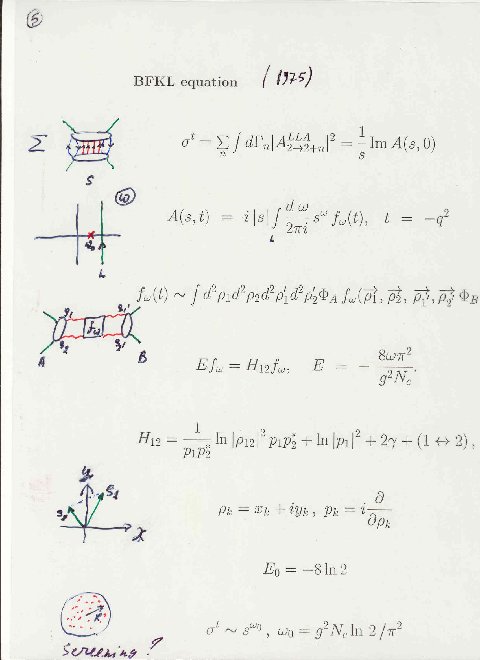 5
BFKL equation (1975)
Σ
S
σ^t = Σ_n ∫ dΓ_n |A^{LLA}_{2→2+n}|^2 = 1/s Im A(s, 0)
ω
L
A(s, t) = i |s| ∫_L dω/2πi s^ω f_ω(t), t = −q^2
f_ω(t) ∼ ∫ d^2ρ_1 d^2ρ_2 d^2ρ_1' d^2ρ_2' Φ_A f_ω(ρ_1→, ρ_2→, ρ_1'→, ρ_2'→) Φ_B
f_ω
A B
E f_ω = H_12 f_ω, E = − 8ωπ^2/g^2N_c.
H_12 = 1/p_1p_2^* ln |ρ_12|^2 p_1p_2^* + ln |p_1|^2 + 2γ + (1 ↔ 2),
y
x
ρ_k = x_k + iy_k, p_k = i ∂/∂ρ_k
E_0 = −8 ln 2
R
σ^t ∼ s^{ω_0}, ω_0 = g^2N_c ln 2/π^2
Screening?